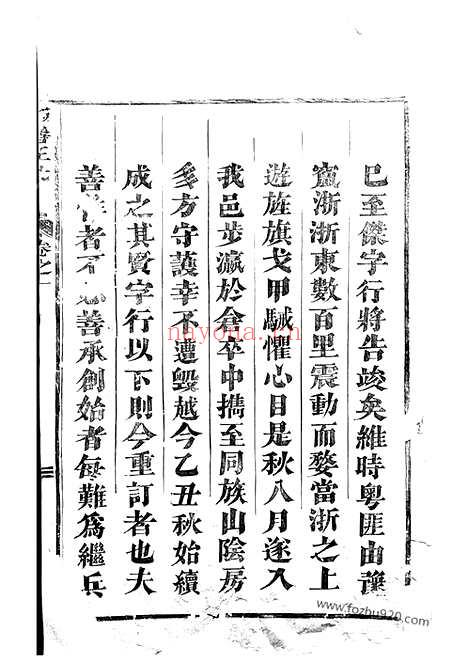 已至傑字行將告竣矣維時粵匪由豫
竄浙浙東數百里震動而婺當浙之上
遊旌旗戈甲駴懼心目是秋八月遂入
我邑步瀛於倉卒中攜至同族山陰房
多方守護幸不遭毀越今乙丑秋始續
成之其賢字行以下則今重訂者也夫
善作者不善承創始者每難爲繼兵
卷之一
nayona.cn
www.fozhu920.com